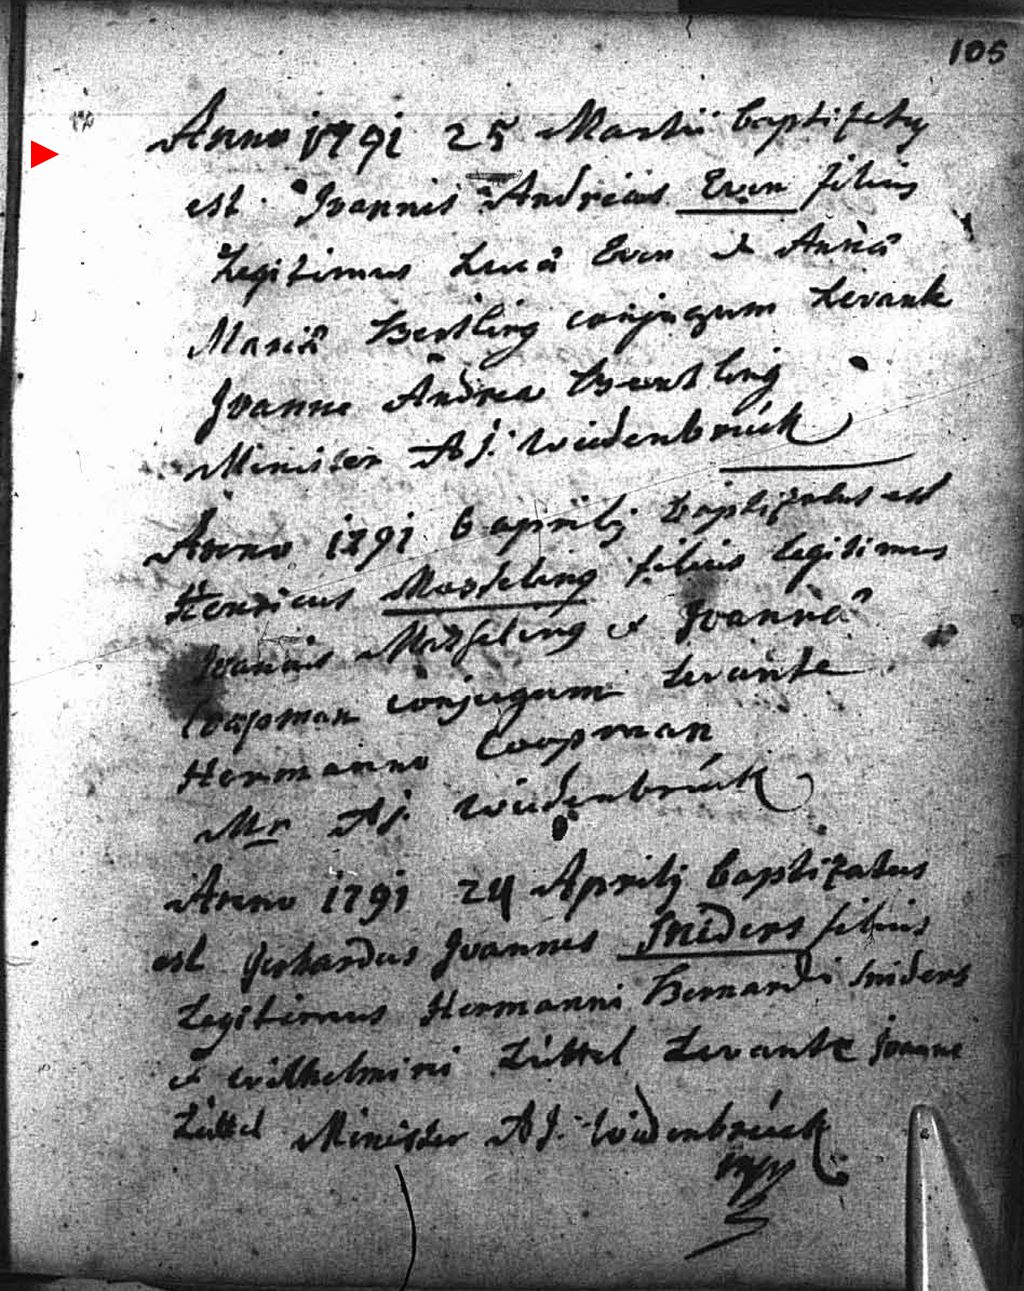 105
Anno 1791 25 Martii baptizatus
est Joannis Andreas Even filius
Legitimus Lucâ Even & Annâ
Mariâ Bertling conjugum Levante
Joanne Andrea Bertling
Minister A J. Wiedenbrück
Anno 1791 6 aprilis baptizatus est
Henricus Masseling filius legitimus
Joannis Masseling & Joannâ
Coopman conjugum Levante
Hermanno Coopman
Mr A J. Wiedenbrück
Anno 1791 24 Aprilis baptizatus
est Gerhardus Joannes Sniders filius
Legitimus Hermanni Bernardi Sniders
& Wilhelmini Lüttel Levante Joanne
Lüttel Minister A J. Wiedenbrück